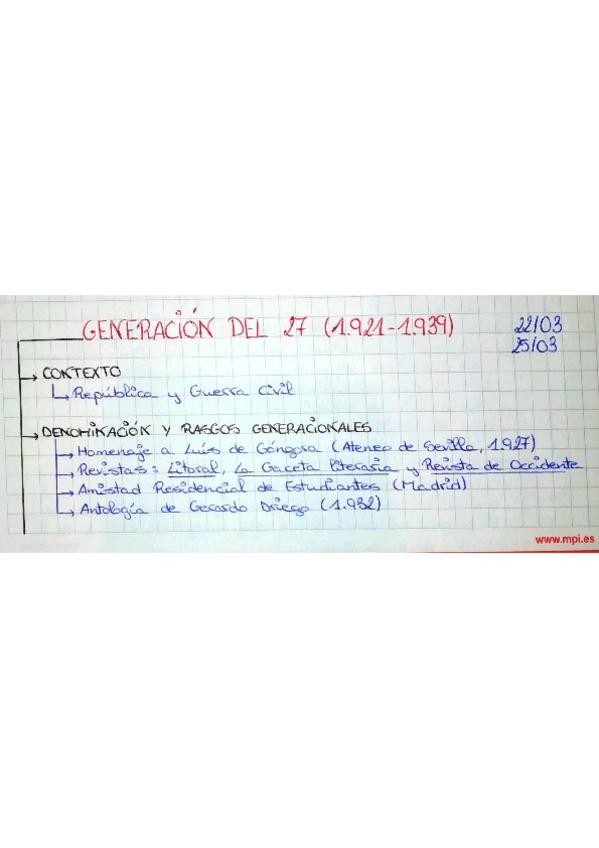 GENERACIÓN DEL 27 (1.921-1.939)
22/03
25/03
→ CONTEXTO
↳ República y Guerra Civil
→ DENOMINACIÓN Y RASGOS GENERACIONALES
→ Homenaje a Luis de Góngora (Ateneo de Sevilla, 1.927)
→ Revistas: Litoral, La Gaceta literaria y Revista de Occidente
→ Amistad Residencial de Estudiantes (Madrid)
→ Antología de Gerardo Driego (1.932)
www.mpi.es